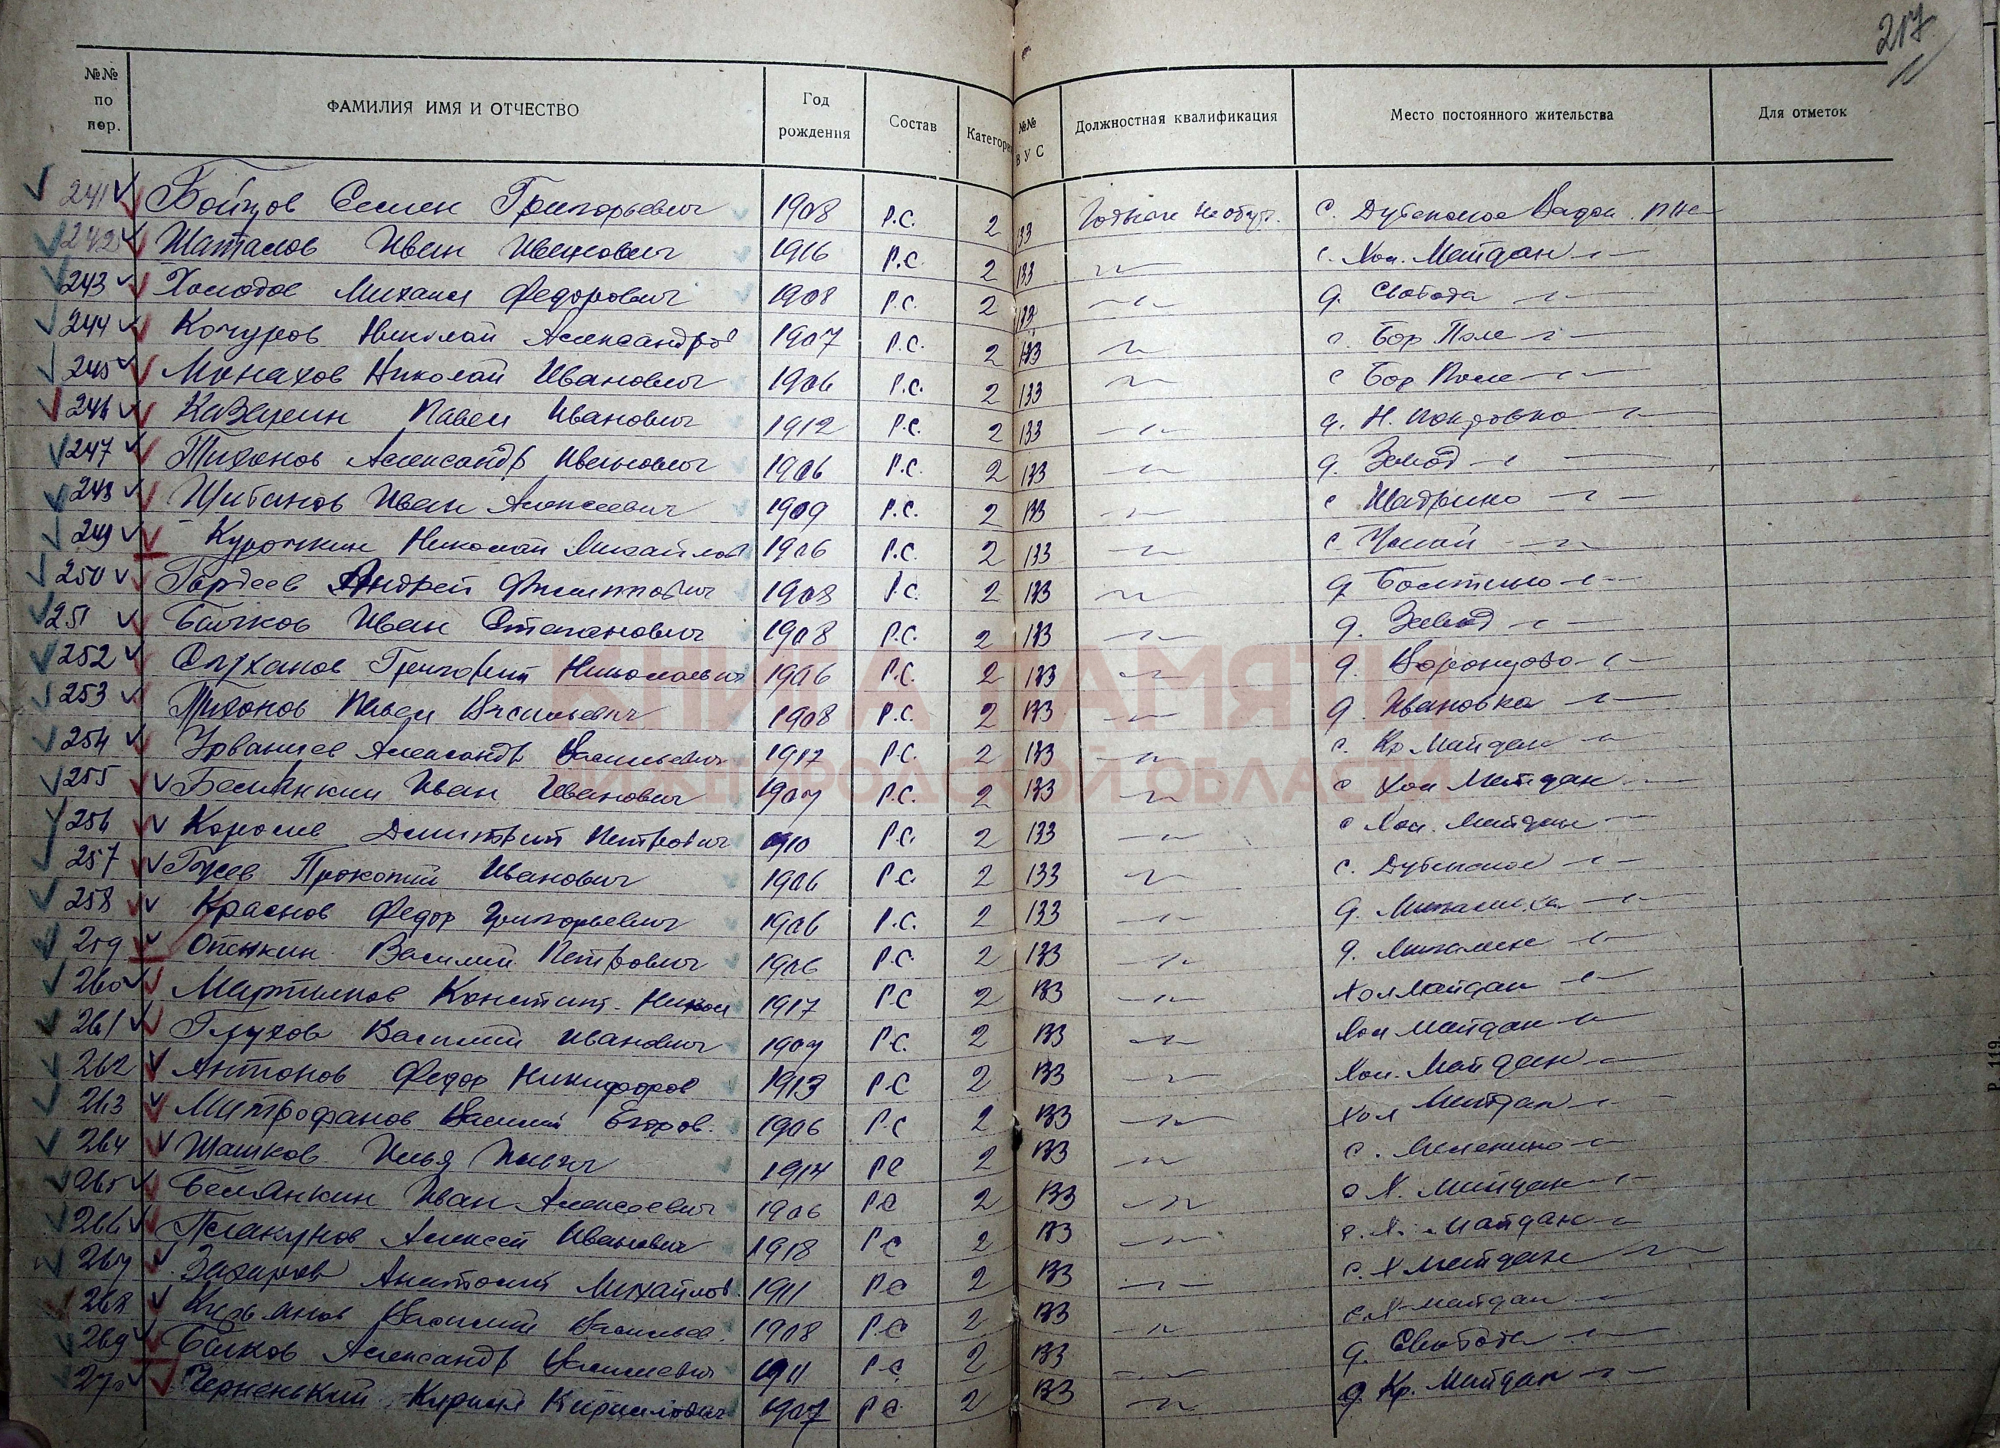 217
№№ по пор. ФАМИЛИЯ ИМЯ И ОТЧЕСТВО Год рождения Состав Категория №№ ВУС Должностная квалификация Место постоянного жительства Для отметок
241 Бойцов Семен Григорьевич 1908 Р.С. 2 133 Годные необуч. с. Дубенское Вадск. р-на
242 Шаталов Иван Иванович 1916 Р.С. 2 133 -"- с. Хол. Майдан -"-
243 Холодов Михаил Федорович 1908 Р.С. 2 133 -"- д. Свобода -"-
244 Кочуров Николай Александров 1907 Р.С. 2 133 -"- с. Бор Поле -"-
245 Монахов Николай Иванович 1906 Р.С. 2 133 -"- с Бор Поле -"-
246 Павел Иванович 1912 Р.С. 2 133 -"- д. Н. Покровка -"-
247 Тихонов Александр Иванович 1906 Р.С. 2 133 -"- д. Завод -"-
248 Шибанов Иван Алексеевич 1909 Р.С. 2 133 -"- с Шадрино -"-
249 Курочкин Николай Михайлов 1906 Р.С. 2 133 -"- с -"-
250 Гордеев Андрей Филиппович 1908 Р.С. 2 133 -"- д Болтино -"-
251 Балков Иван Степанович 1908 Р.С. 2 133 -"- д. Завод -"-
252 Григорий Николаевич 1906 Р.С. 2 133 -"- д. Воронцово -"-
253 Тихонов Павел Васильевич 1908 Р.С. 2 133 -"- д. Ивановка -"-
254 Урванцев Александр Васильевич 1917 Р.С. 2 133 -"- с. Кр Майдан -"-
255 Белянкин Иван Иванович 1907 Р.С. 2 133 -"- с Хол Майдан -"-
256 Королев Дмитрий Петрович 1910 Р.С. 2 133 -"- с Хол. Майдан -"-
257 Гусев Прокопий Иванович 1906 Р.С. 2 133 -"- с. Дубенское -"-
258 Краснов Федор Григорьевич 1906 Р.С. 2 133 -"- д. -"-
259 Опенкин Василий Петрович 1906 Р.С. 2 133 -"- д. -"-
260 Мартынов Констант. Никол 1917 Р.С 2 133 -"- Хол Майдан -"-
261 Глухов Василий Иванович 1907 Р.С. 2 133 -"- Хол Майдан -"-
262 Антонов Федор Никифоров 1913 Р.С 2 133 -"- Хол. Майдан -"-
263 Митрофанов Василий Егоров. 1906 Р.С 2 133 -"- Хол Майдан -"-
264 Шашков Илья 1914 РС 2 133 -"- с. -"-
265 Белянкин Иван Алексеевич 1906 РС 2 133 -"- с Х. Майдан -"-
266 Плакунов Алексей Иванович 1918 РС 2 133 -"- с. Х. Майдан -"-
267 Захаров Анатолий Михайлов. 1911 РС 2 133 -"- с. Х Майдан -"-
268 Василий Васильев. 1908 РС 2 133 -"- с Х Майдан -"-
269 Балков Александр Васильевич 1911 РС 2 133 -"- д. Свобода -"-
270 Черненький Кирилл Кириллович 1907 РС 2 133 -"- д. Кр. Майдан -"-
КНИГА ПАМЯТИ
НИЖЕГОРОДСКОЙ ОБЛАСТИ
Р. 119